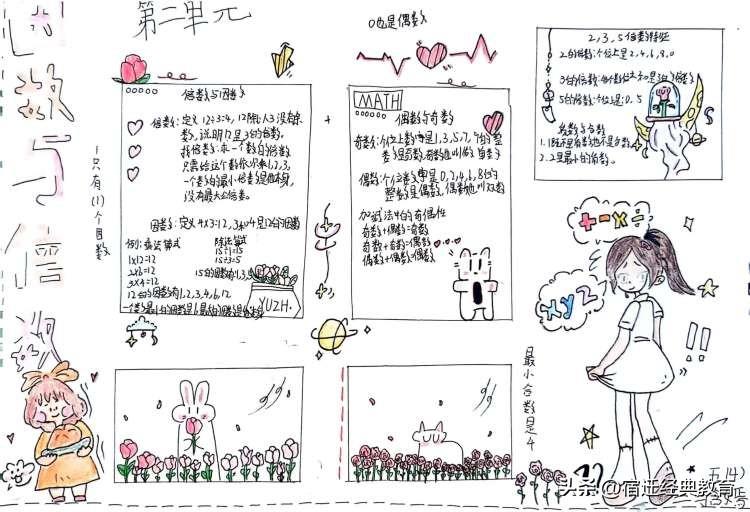 因数与倍数
第二单元
0也是偶数
1只有(1)个因数
倍数与因数
倍数:定义 12÷3=4, 12除以3没有余
数,说明12是3的倍数。
找倍数:求一个数的倍数
只需给这个数依次乘1,2,3,
一个数的最小倍数是他本身,
没有最大的倍数。
因数:定义 4×3=12, 3和4是12的因数
例:乘法算式 除法算式
1×12=12 15÷1=15
2×6=12 15÷3=5
3×4=12 15的因数有1,3,5
12的因数有1,2,3,4,6,12
YUZH.
MATH
偶数与奇数
奇数:个位上数字是1,3,5,7,9的整
数是奇数,奇数也叫做单数
偶数:个位数字是0,2,4,6,8的
整数是偶数,偶数也叫双数
加减法中的奇偶性
奇数+偶数=奇数
奇数+奇数=偶数
偶数+偶数=偶数
2,3,5倍数特征
2的倍数:个位上是2,4,6,8,0
3的倍数:每个数位之和是3的倍数
5的倍数:个位是0,5
质数与合数
1.1既不是质数也不是合数。
2.2是最小的质数。
+-×÷
xy2
!!
最小合数是4
五(4)
头条@宿迁经典教育